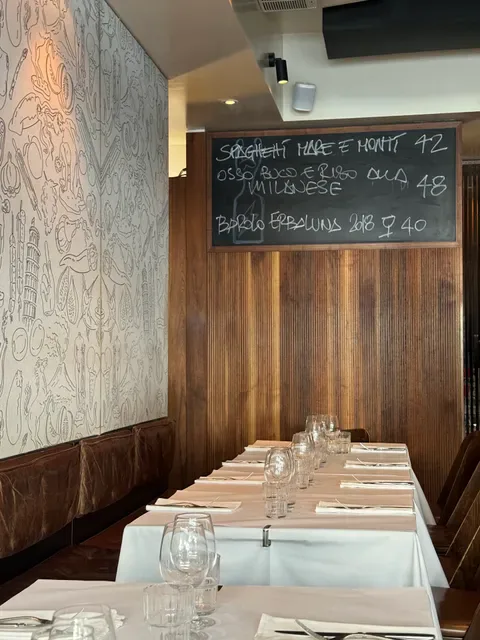 SPAGHETTI MARE E MONTI 42
OSSO BUCO E RISO ALLA
MILANESE 48
BAROLO ERBALUNA 2018 40